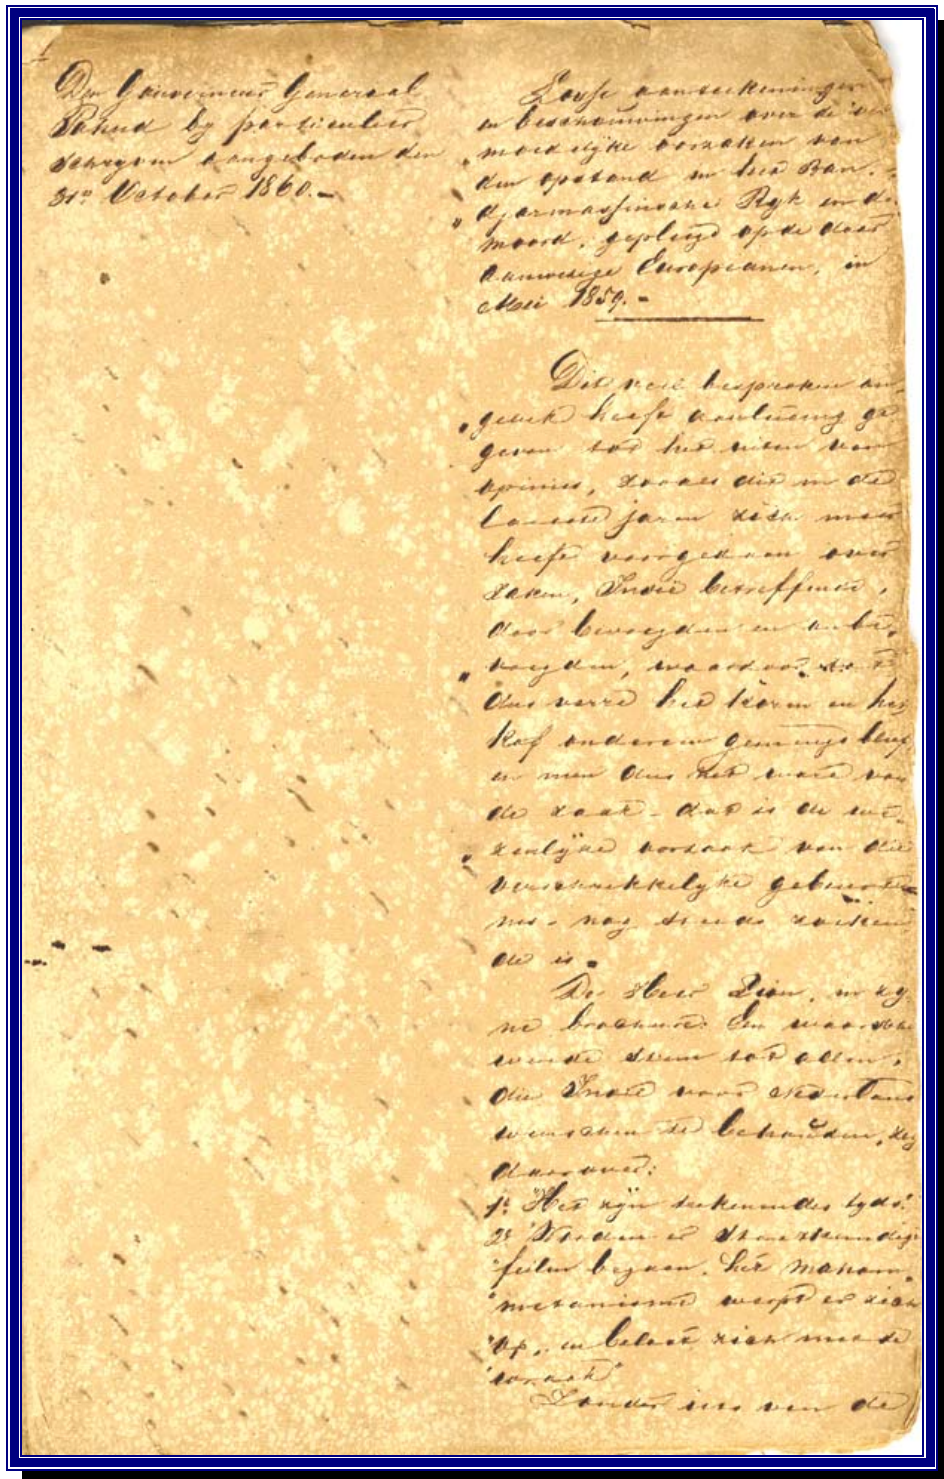 Den Gouverneur Generaal
Pahud by particulier
schryven aangeboden den
31n October 1860.-
Losse aanteekeningen
en beschouwingen over de ver
moedelyke oorzaken van
den opstand in het Ban-
djermassinsche Ryk en de
moord, gepleegd op de daar
aanwezige Europeanen, in
Mei 1859.-
Dit veel besproken on-
geluk heeft aanleiding ge
geven tot het uiten van
opinies, zooals die in de
laatste jaren zich meer
heeft voorgedaan over
zaken, Indië betreffende,
door bevoegden en onbe-
voegden, waardoor
dus verre het koren en het
kaf ondereen gemengd bleef
en men dus het ware van
de zaak - dat is de we-
zenlyke oorzaak van die
verschrikkelyke gebeurte
nis - nog steeds zoeken
de is.
De Heer Lion, in zy
ne brochure: Een waarschu
wende stem tot allen,
die Indië voor Nederland
wenschen te behouden, zeg
daarover:
1e Het zyn teekenen des tyds!
2e Worden er staatkundige
feilen begaan, het Maham-
metanisme werpt er zich
op, en belast zich met de
wraak"
Zonder iets van de